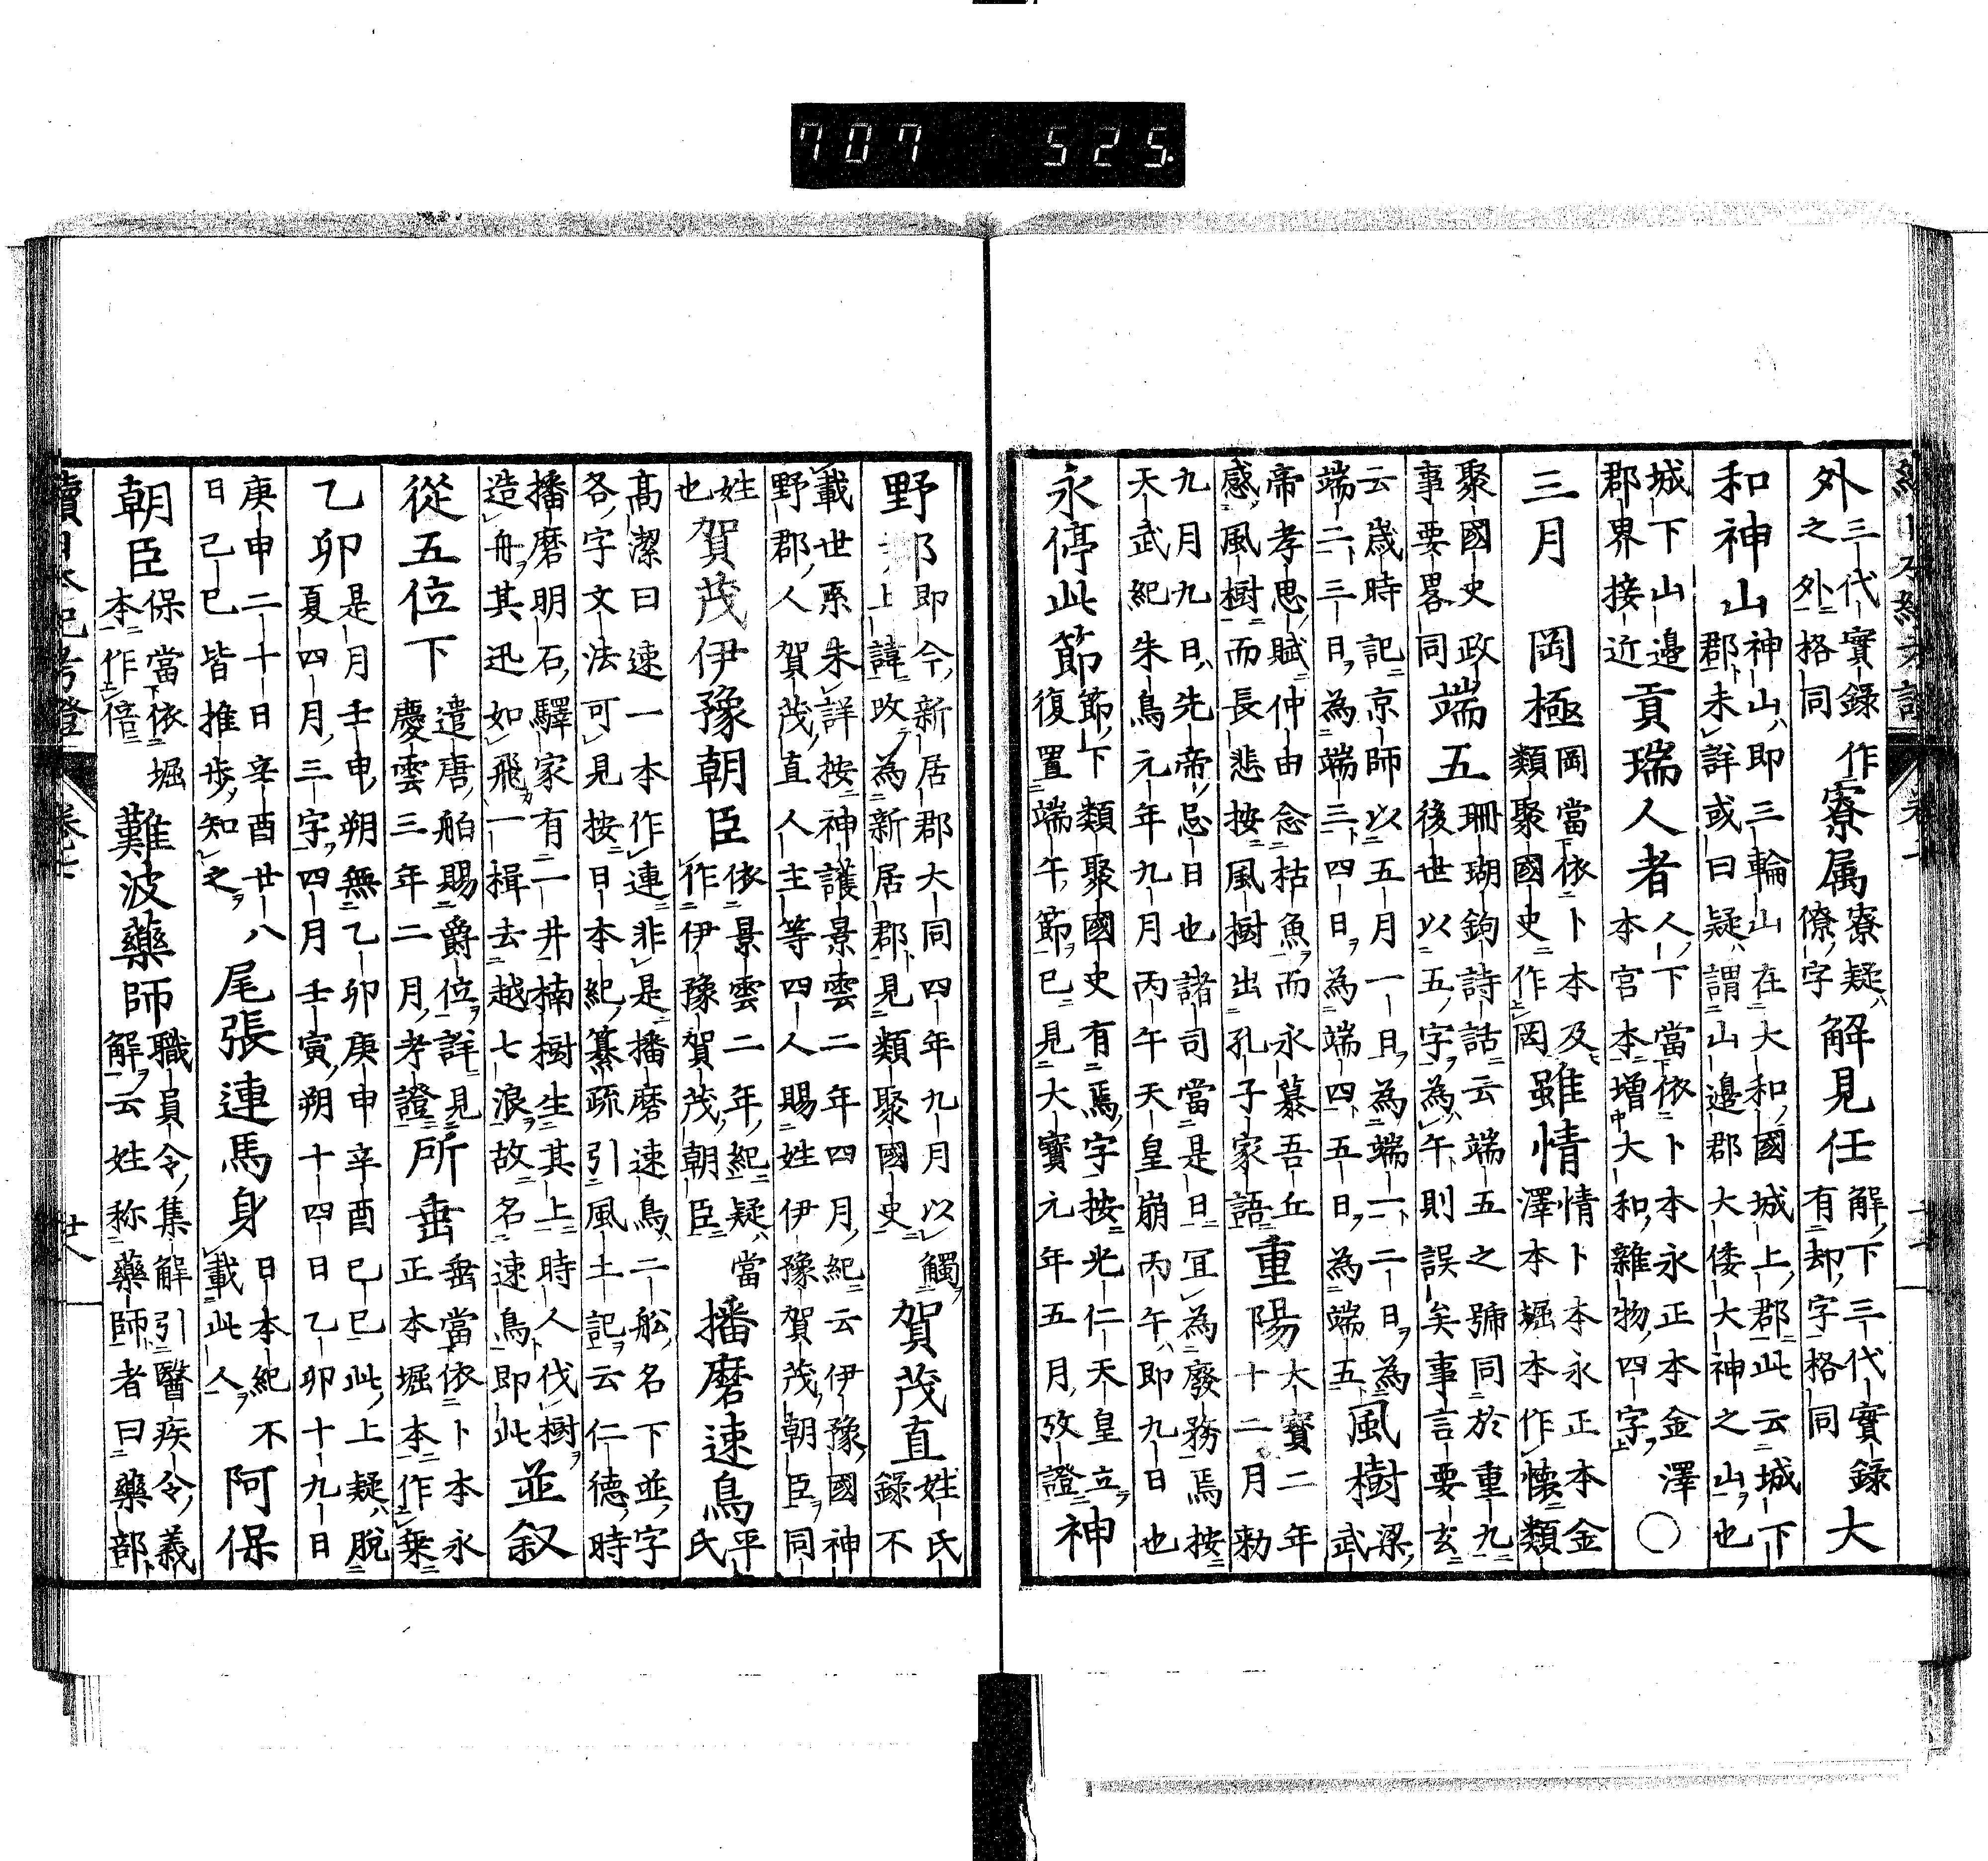 外三代實録作之外格同寮属寮疑僚字解見任解下三代實録有却字格同大
和神山神山ハ即三輪山在大和國城上郡此云城下郡未詳或曰疑ハ謂山邊郡大倭大神之山也
城下山邊郡界接近貢瑞人者人下當依卜本永正本金澤本宮本增大和雜物四字〇
三月 岡極岡當依卜本及類聚國史作罔雖情情卜本永正本金澤本堀本作懐類
聚國史政事要畧同端五珊瑚鉤詩話云端五之號同於重九後世以五字為午則誤矣事言要玄
云歲時記京師以五月一日為端一二日為端二三日為端三四日為端四五日為端五風樹梁武
帝孝思賦仲由念枯魚而永慕吾丘感風樹而長悲按風樹出孔子家語重陽大寶二年十二月勅
九月九日先帝忌日也諸司當是日宜為廢務焉按天武紀朱鳥元年九月丙午天皇崩丙午即九日也
永停此節節下類聚國史有焉字按光仁天皇立復置端午節已見大寶元年五月攷證神
野郡即今新居郡大同四年九月以觸上諱改為新居郡見類聚國史賀茂直姓氏錄不
載世系朱詳按神護景雲二年四月紀云伊豫國神野郡人賀茂直人主等四人賜姓伊豫賀茂朝臣同
姓也賀茂伊豫朝臣依景雲二年紀疑當作伊豫賀茂朝臣播磨速鳥平氏
高潔曰速一本作連非是播磨速鳥二舩名下並字各字文法可見按日本紀纂疏引風土記云仁德時
播磨明石驛家有一井楠樹生其上時人伐樹造舟其迅如飛一楫去越七浪故名速鳥即此並叙
從五位下遣唐舶賜爵位詳見慶雲三年二月考證所垂垂當依卜本永正本堀本作乗
乙卯是月壬申朔無乙卯庚申辛酉巳巳此上疑脫夏四月三字四月壬寅朔十四日乙卯十九日
庚申二十日辛酉廿八日己巳皆推歩知之尾張連馬身日本紀不載此人阿保
朝臣保當依堀本作倍難波藥師職員令集解引醫疾令義解云姓称藥師者曰藥部
續日本紀考證 卷七 廿八
707 525.